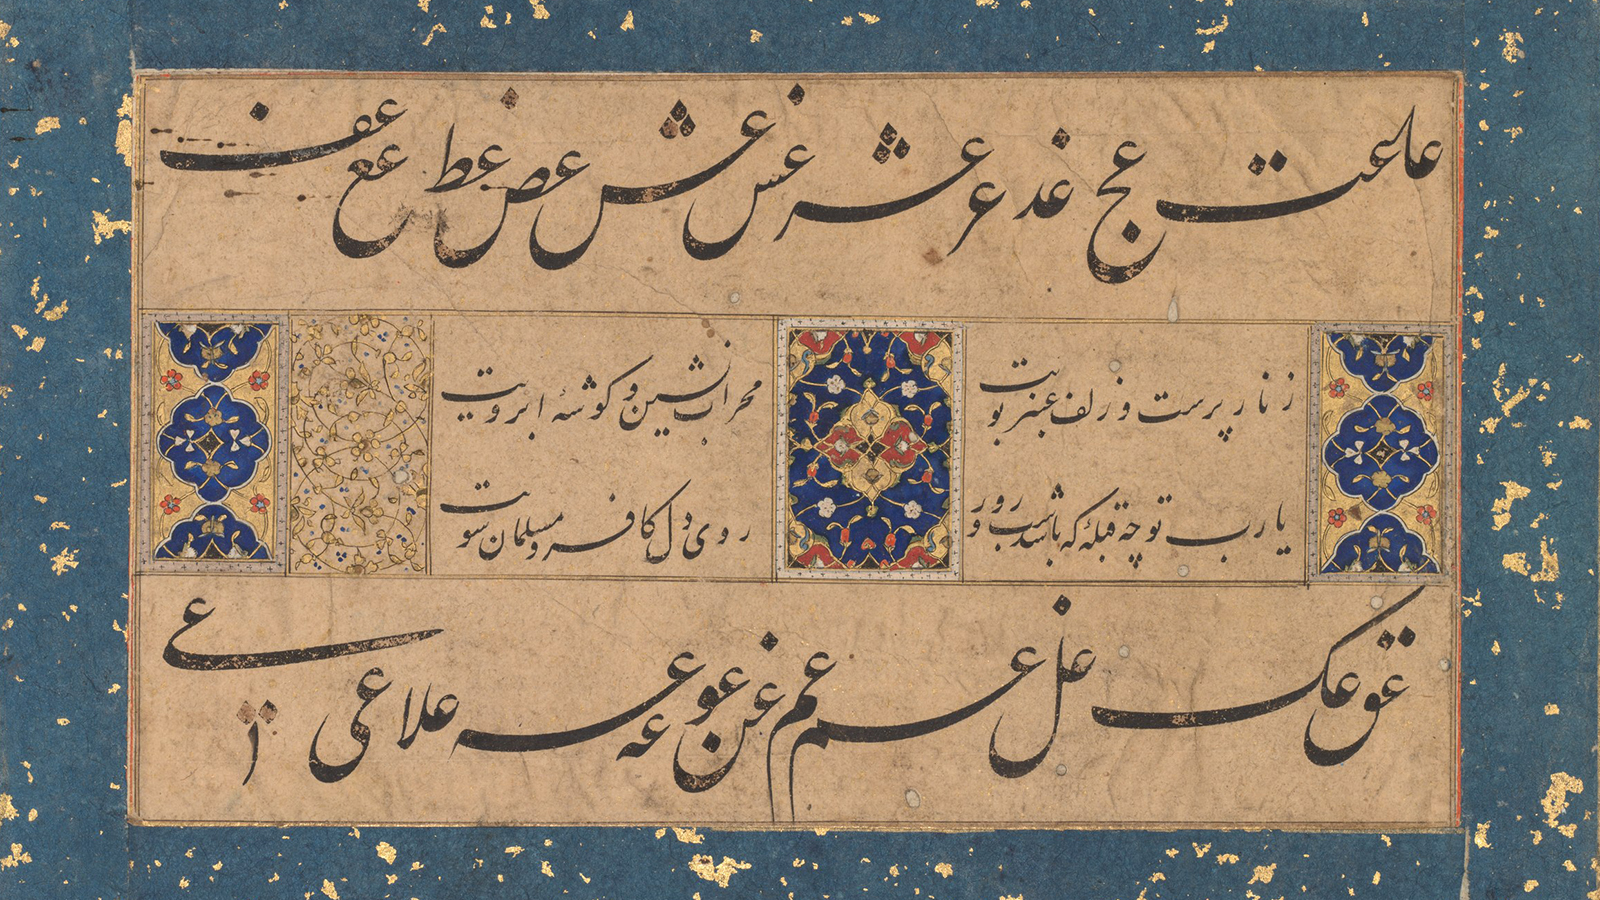 عا عت عج غد عر عشر غس عش عص غط عع عف
زنار پرست و زلف عنبر بویت محراب نشین و کوشهٔ ابرویت
یا رب تو چه قبلهٔ که باشد شب و روز روی دل کافر و مسلمان سویت
عق عک غل عسم عم غن عو عه عسه علا عی عے